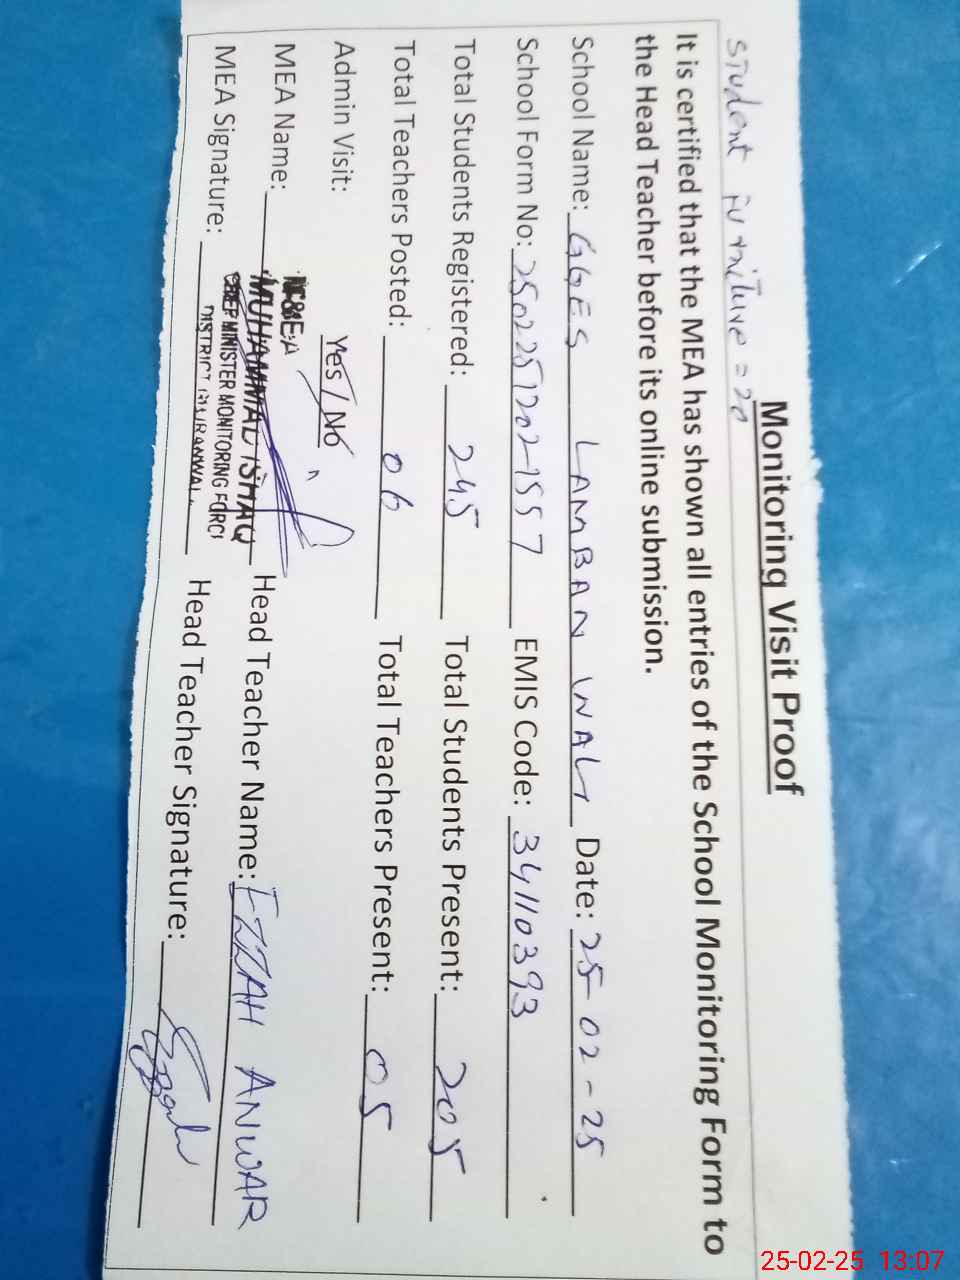 Monitoring Visit Proof
Student furniture = 20
It is certified that the MEA has shown all entries of the School Monitoring Form to
the Head Teacher before its online submission.
School Name: GGES LAMBAN WALI Date: 25-02-25
School Form No: 2502251202-1557 EMIS Code: 34110393
Total Students Registered: 245 Total Students Present: 205
Total Teachers Posted: 06 Total Teachers Present: 05
Admin Visit: Yes / No
MEA Name: MUHAMMAD ISHAQ Head Teacher Name: EZZAH ANWAR
MEA Signature: CHIEF MINISTER MONITORING FORCE Head Teacher Signature:
DISTRICT GUJRANWALA
25-02-25 13:07